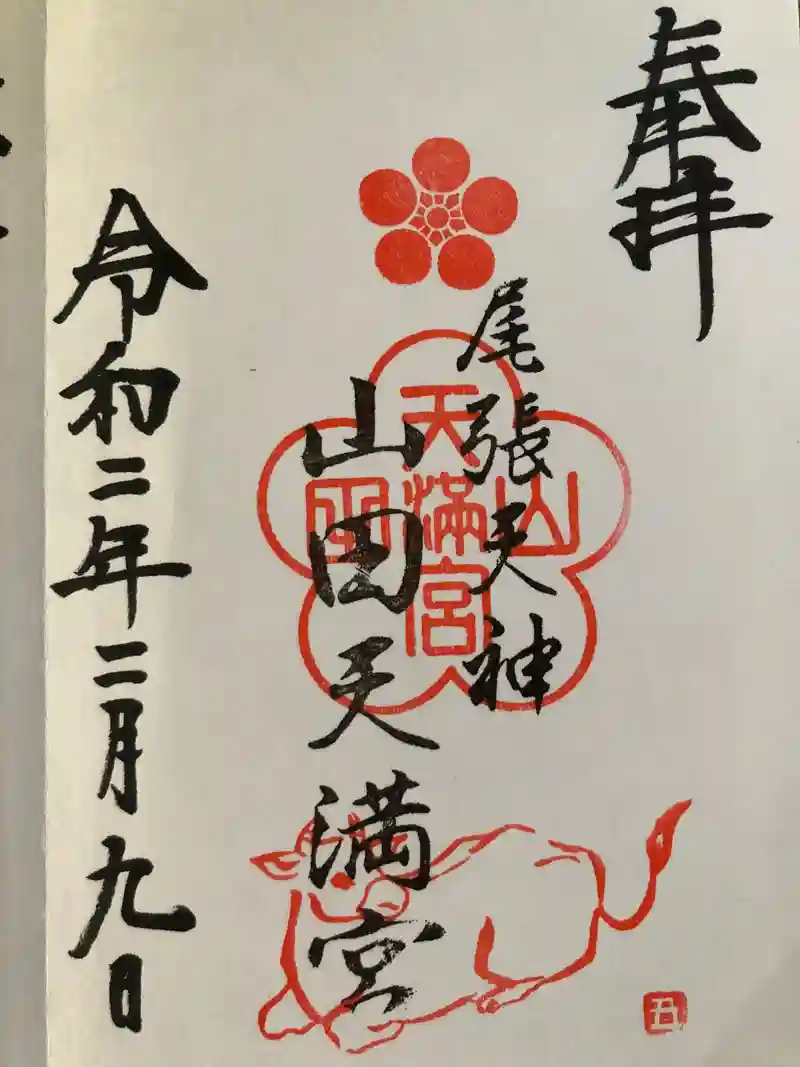 奉拝
尾張天神
山田天満宮
山田天満宮
令和二年二月九日